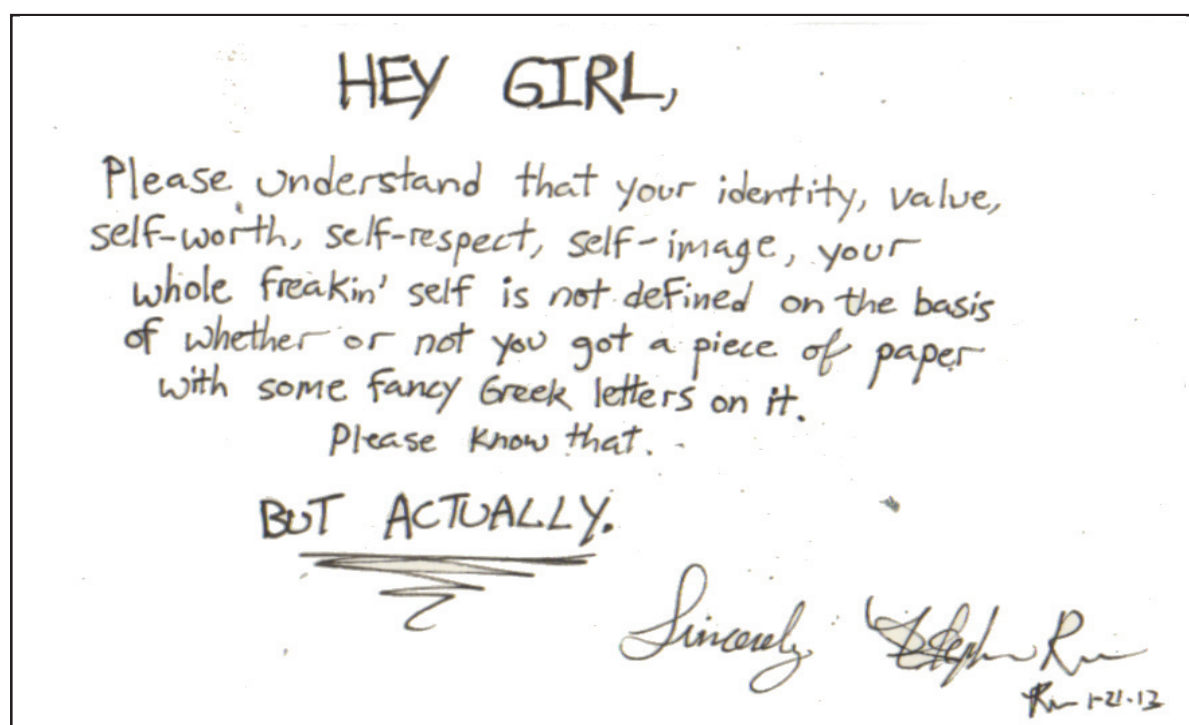 HEY GIRL,
Please understand that your identity, value,
self-worth, self-respect, self-image, your
whole freakin' self is not defined on the basis
of whether or not you got a piece of paper
with some fancy Greek letters on it.
Please know that.
BUT ACTUALLY.
Sincerely,